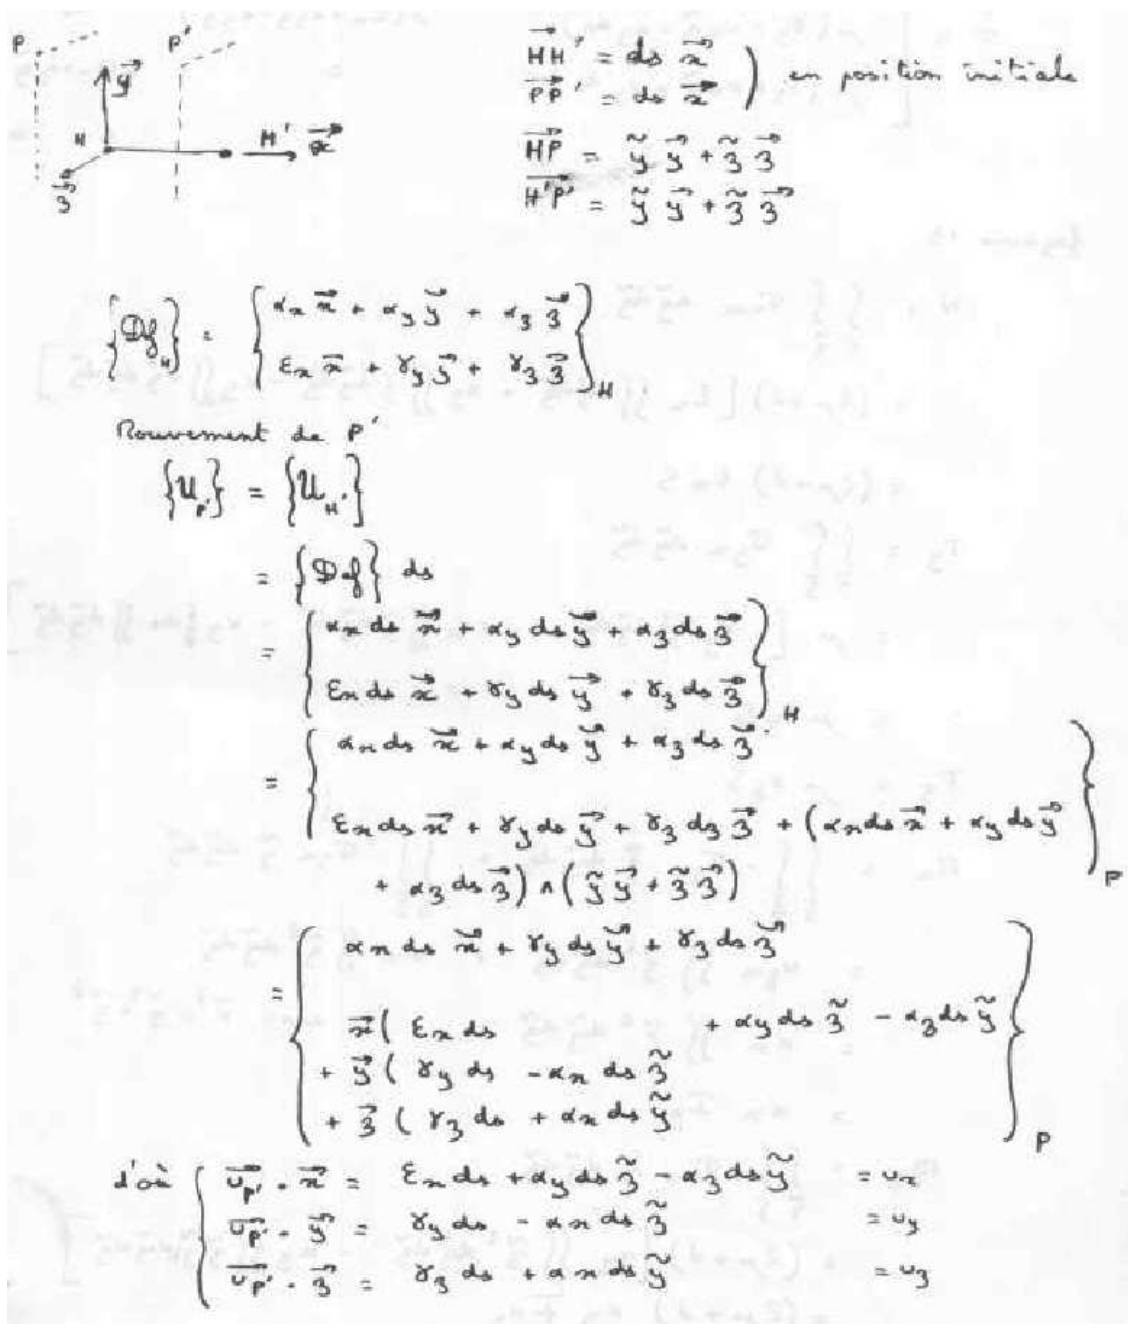 P P'
y⃗
H H' x⃗
z⃗
HH'⃗ = ds x⃗
PP'⃗ = ds x⃗ ) en position initiale
HP⃗ = ỹ y⃗ + z̃ z⃗
H'P'⃗ = ỹ y⃗ + z̃ z⃗
{Def_H} = { αx x⃗ + αy y⃗ + αz z⃗
εx x⃗ + γy y⃗ + γz z⃗ }_H
Mouvement de P'
{U_P'} = {U_H'}
= {Def} ds
= { αx ds x⃗ + αy ds y⃗ + αz ds z⃗
εx ds x⃗ + γy ds y⃗ + γz ds z⃗ }_H
= { αx ds x⃗ + αy ds y⃗ + αz ds z⃗
εx ds x⃗ + γy ds y⃗ + γz dz z⃗ + (αx ds x⃗ + αy ds y⃗
+ αz ds z⃗) ∧ (ỹ y⃗ + z̃ z⃗) }_P
= { αx ds x⃗ + γy ds y⃗ + γz ds z⃗
x⃗ ( εx ds + αy ds z̃ - αz ds ỹ
+ y⃗ ( γy ds - αx ds z̃
+ z⃗ ( γz ds + αx ds ỹ }_P
d'où { U_P'⃗ . x⃗ = εx ds + αy ds z̃ - αz ds ỹ = ux
U_P'⃗ . y⃗ = γy ds - αx ds z̃ = uy
U_P'⃗ . z⃗ = γz ds + αx ds ỹ = uz